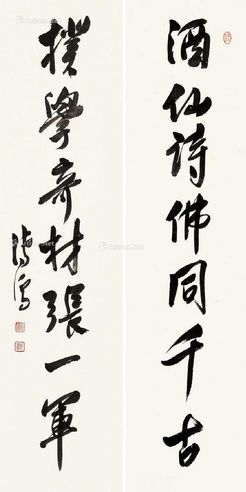 酒仙诗佛同千古
樸學奇材張一軍